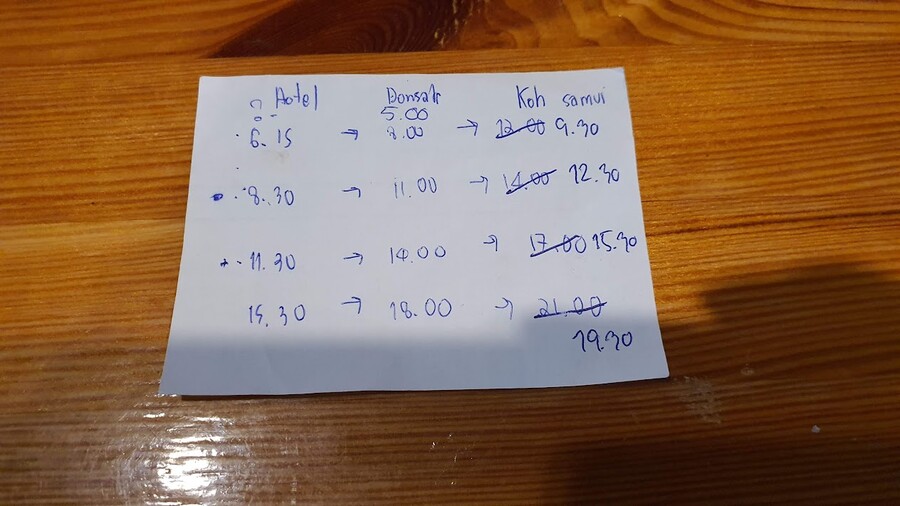 Hotel Donsak Koh samui
5.00
6.15 → 8.00 → 12.00 9.30
8.30 → 11.00 → 14.00 12.30
11.30 → 14.00 → 17.00 15.30
15.30 → 18.00 → 21.00
19.30